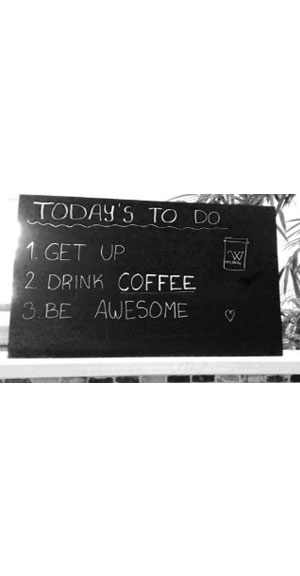 TODAY'S TO DO
1. GET UP
W
2. DRINK COFFEE
3. BE AWESOME